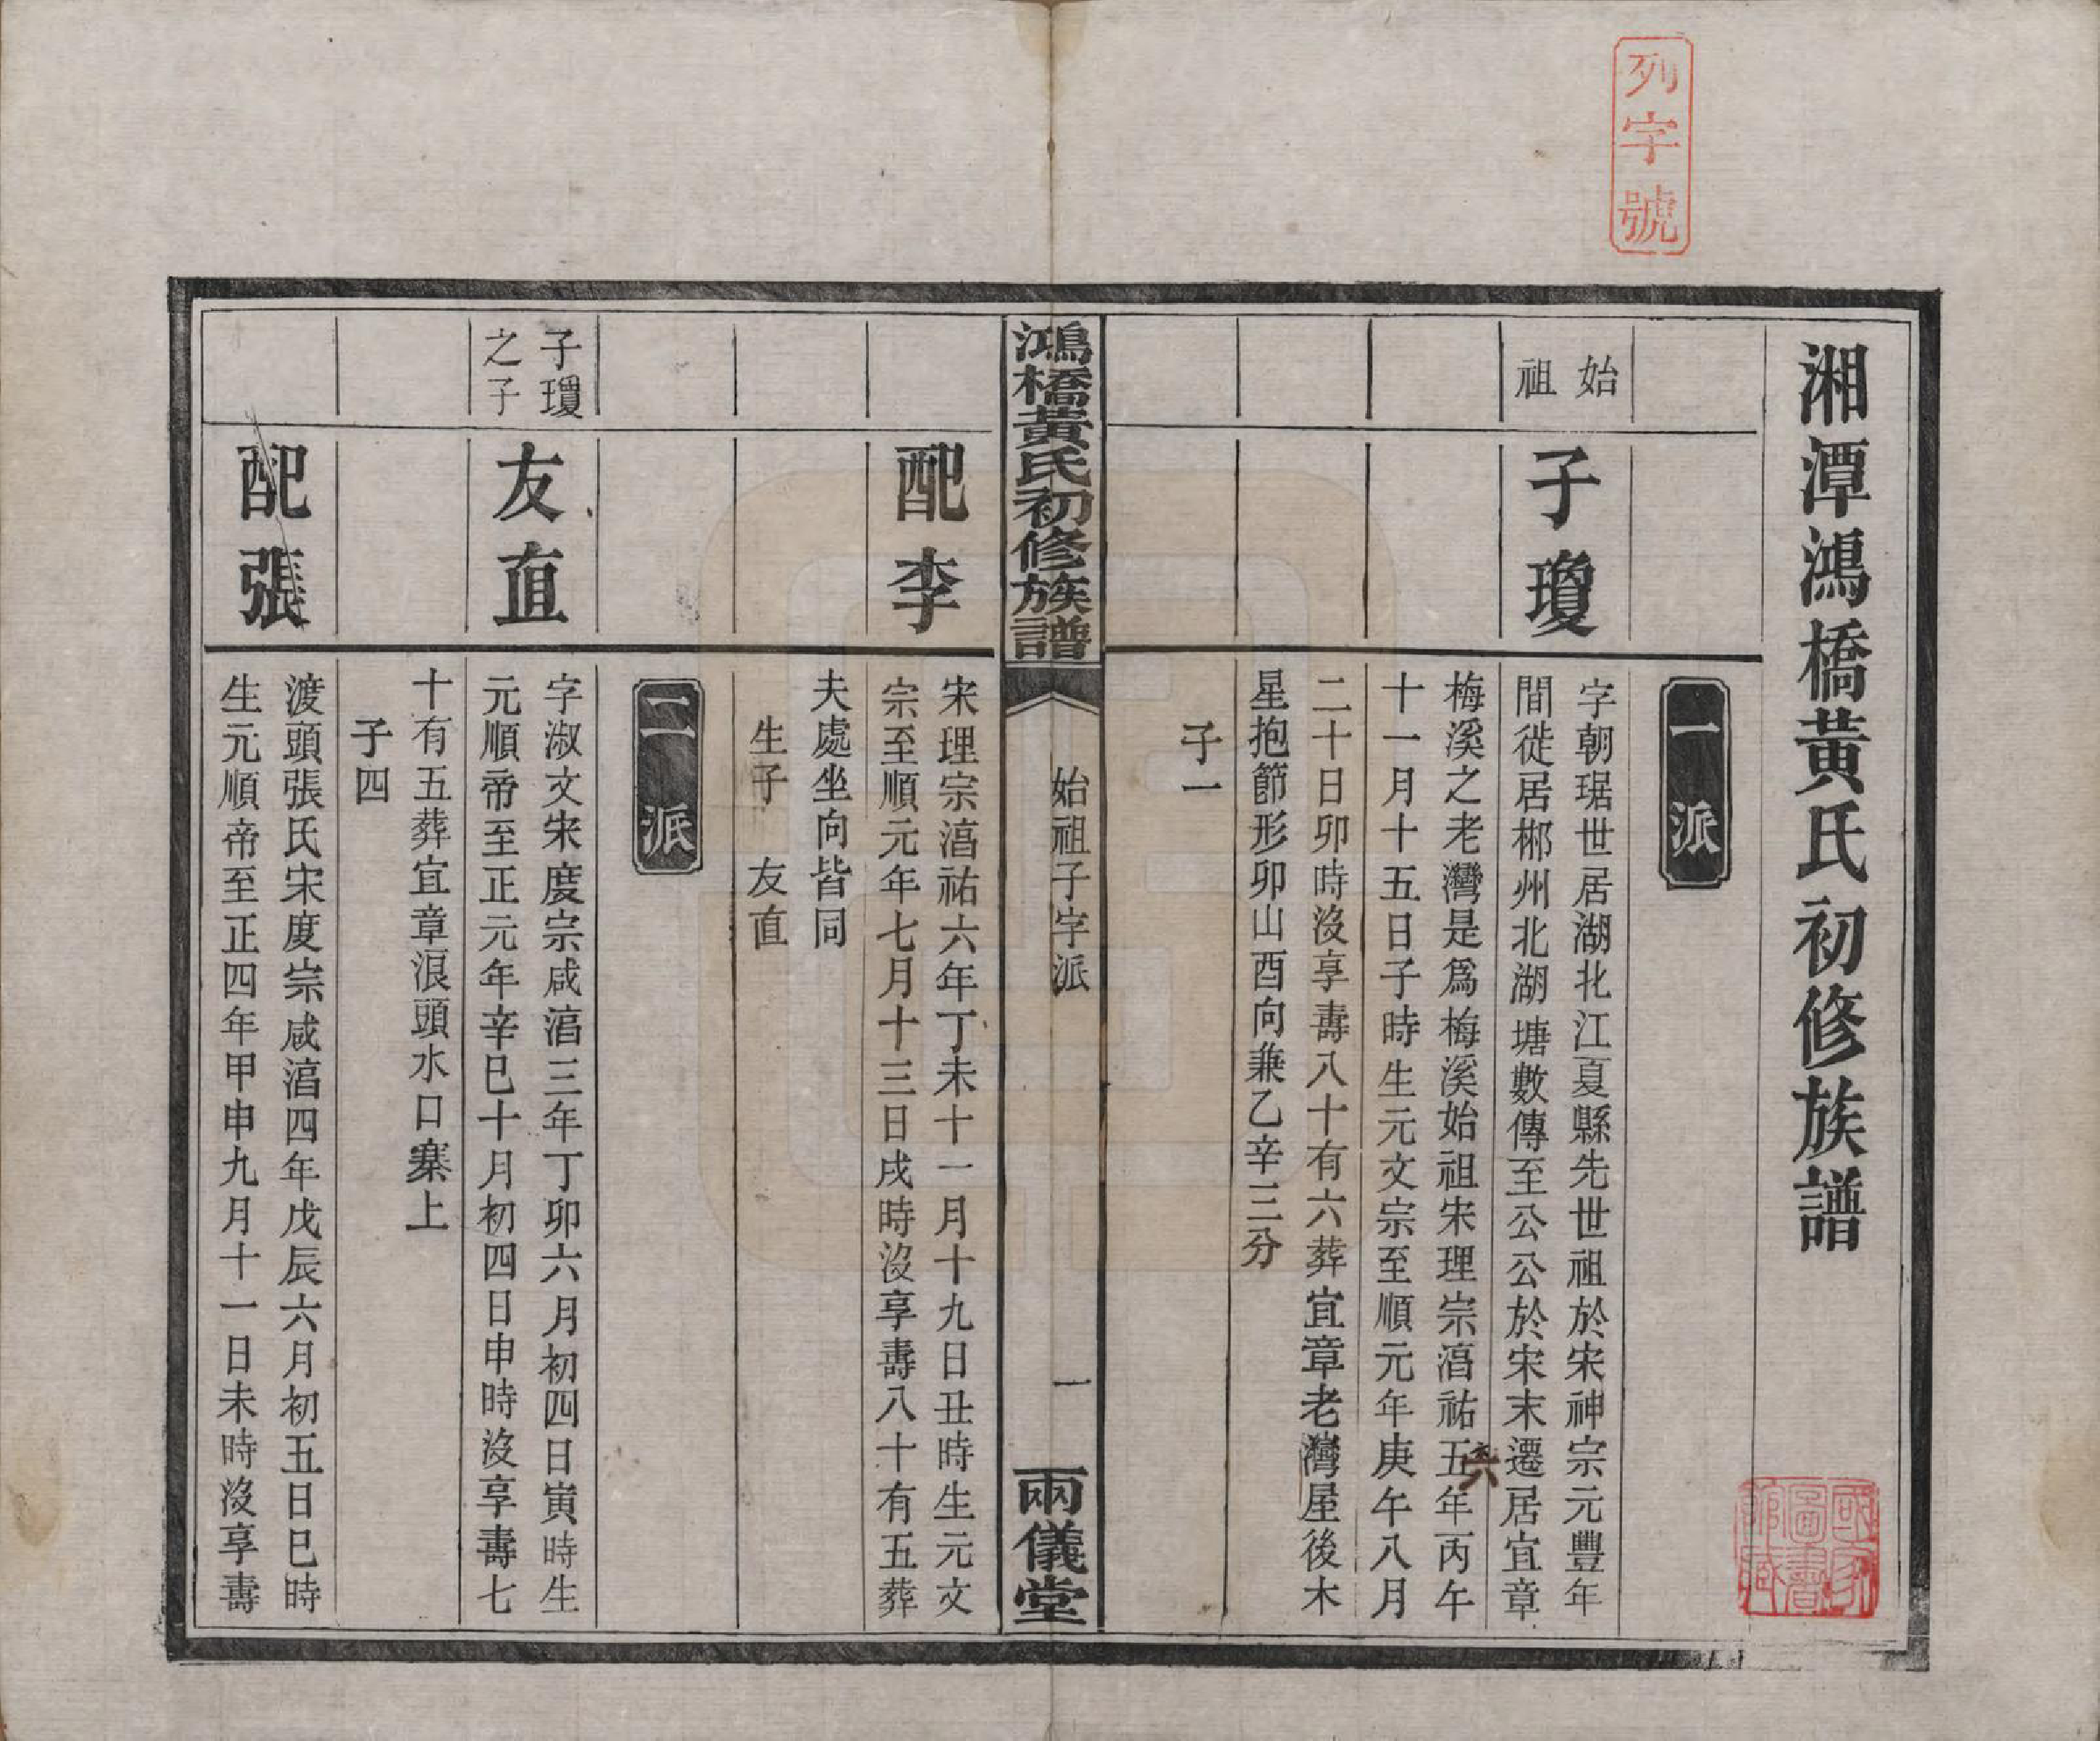 列字號
湘潭鴻橋黃氏初修族譜
國家圖書館藏
一派
始祖
子瓊
字朝琚世居湖北江夏縣先世祖於宋神宗元豐年
間徙居郴州北湖塘數傳至公公於宋末遷居宜章
梅溪之老灣是爲梅溪始祖宋理宗湻祐五年丙午
六
十一月十五日子時生元文宗至順元年庚午八月
二十日卯時沒享壽八十有六葬宜章老灣屋後木
星抱節形卯山酉向兼乙辛三分
子一
鴻橋黃氏初修族譜
始祖子字派
一
兩儀堂
配李
宋理宗湻祐六年丁未十一月十九日丑時生元文
宗至順元年七月十三日戌時沒享壽八十有五葬
夫處坐向皆同
生子 友直
二派
子瓊
之子
友直
字淑文宋度宗咸湻三年丁卯六月初四日寅時生
元順帝至正元年辛巳十月初四日申時沒享壽七
十有五葬宜章浪頭水口寨上
子四
配張
渡頭張氏宋度宗咸湻四年戊辰六月初五日巳時
生元順帝至正四年甲申九月十一日未時沒享壽